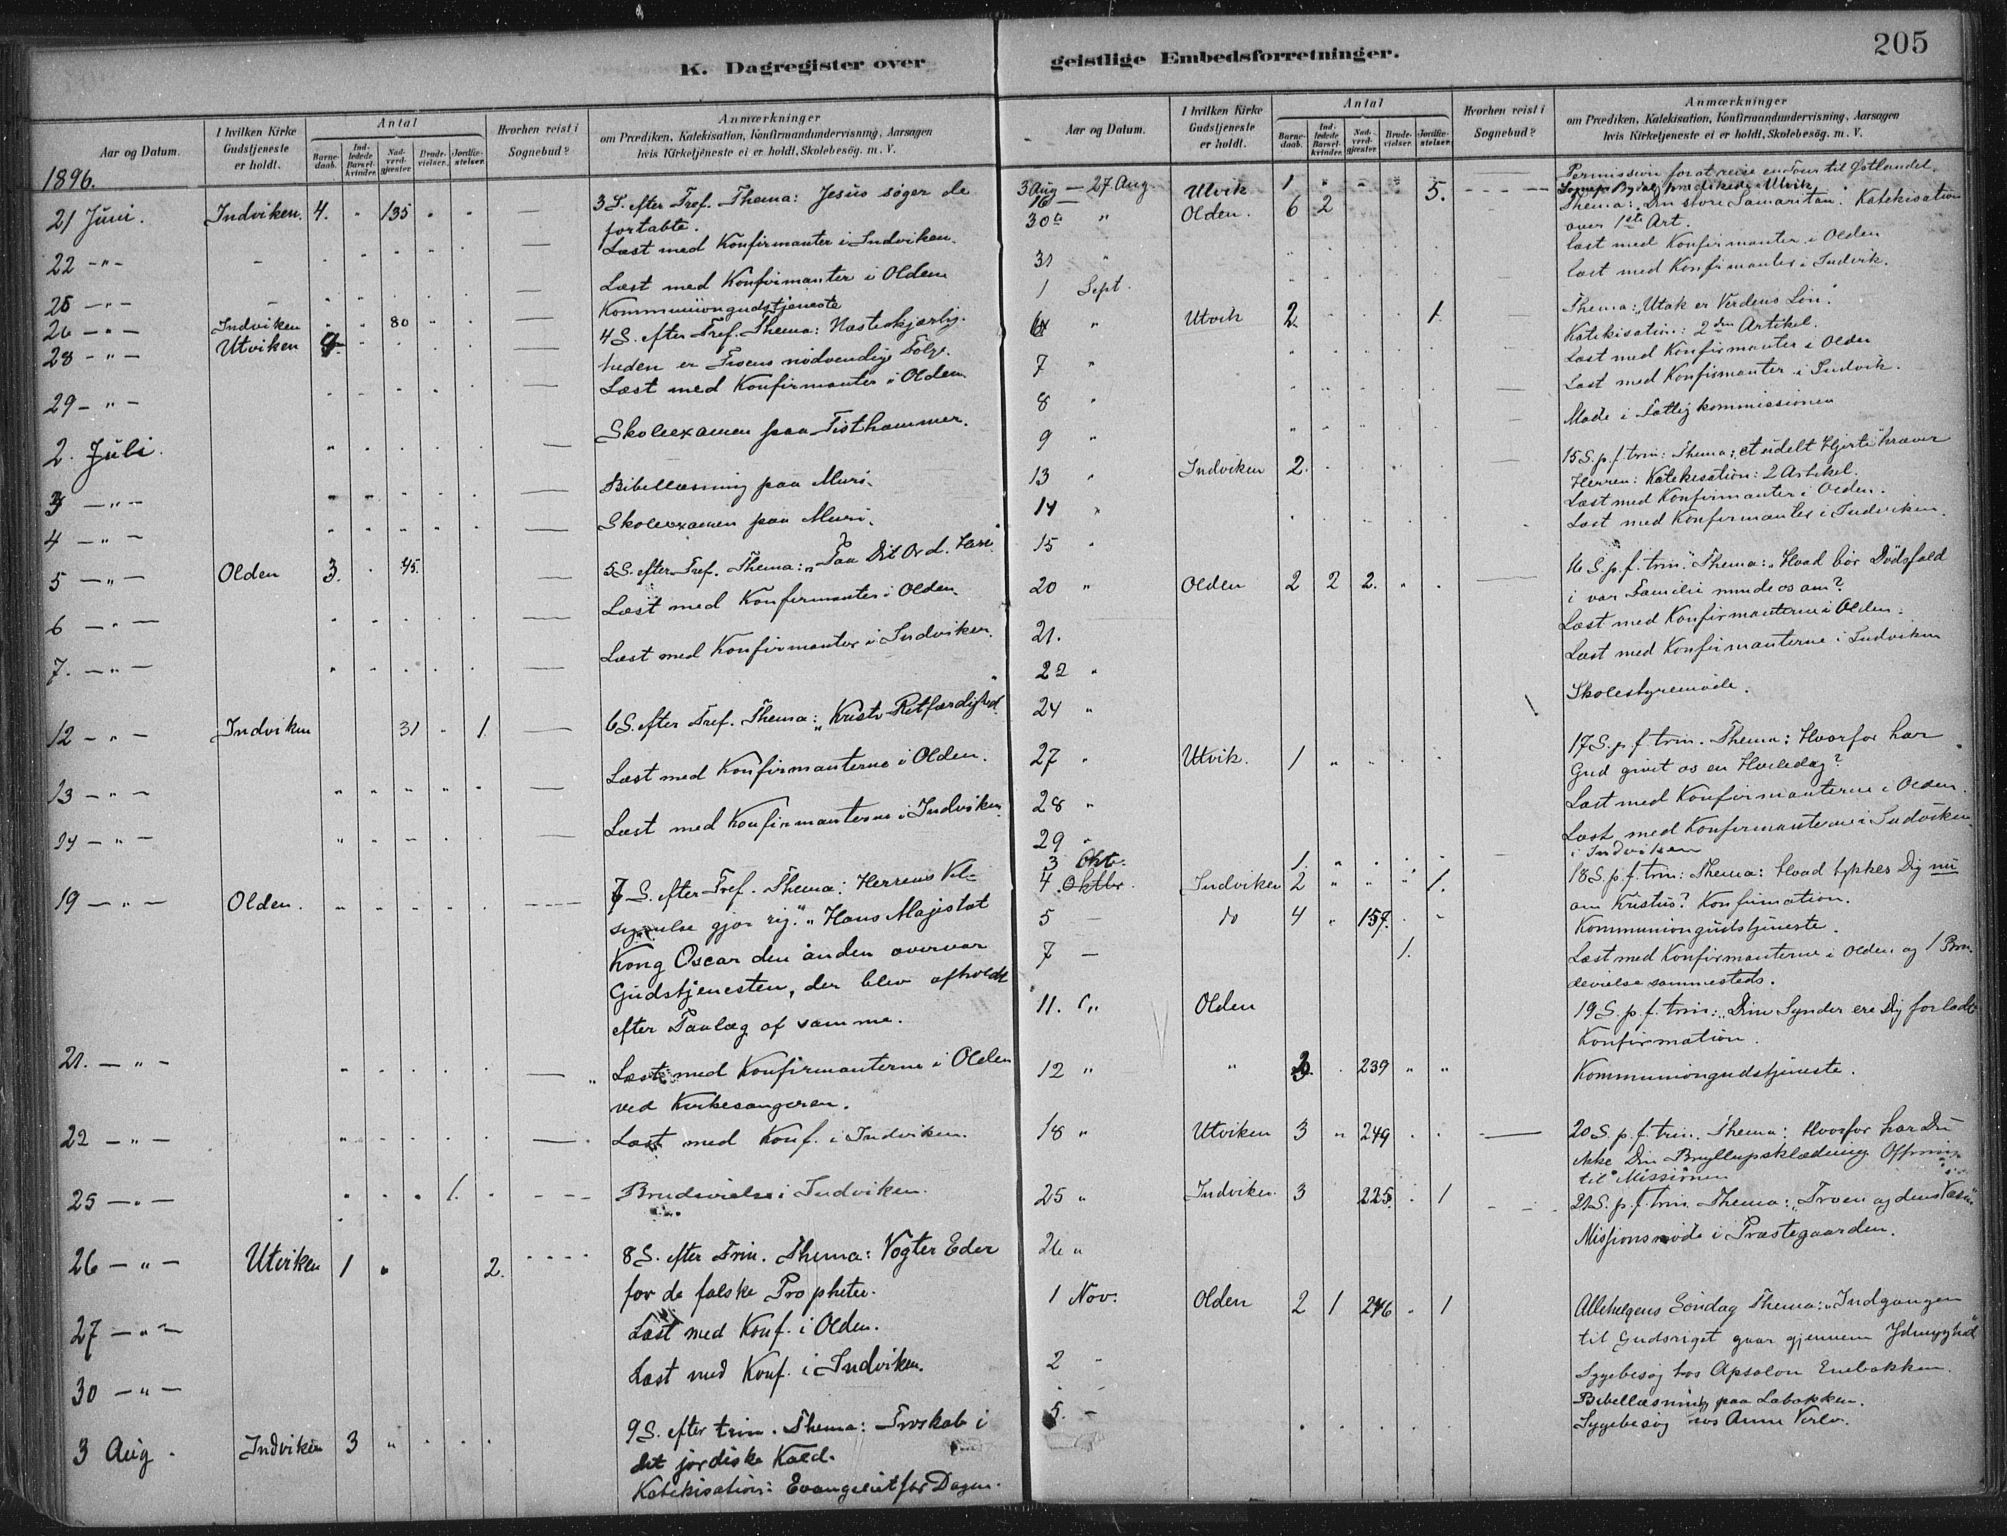 205
K. Dagregister over geistlige Embedsforretninger.
Aar og Datum.
I hvilken Kirke Gudstjeneste er holdt.
Antal
Barnedaab.
Indledede Barselkvinder.
Nadverdgjester
Brudevielser.
Jordfæstelser.
Hvorhen reist i Sognebud?
Anmærkninger
om Prædiken, Katekisation, Konfirmandundervisning, Aarsagen
hvis Kirketjeneste ei er holdt, Skolebesøg. m. V.
1896.
21 Juni. Indviken. 4. " 135 " " — 3 S. efter Tref. Thema: Jesus søger de
fortabte.
22 — " — Læst med Konfirmanter i Indviken.
25 — " — Læst med Konfirmanter i Olden
26 — " — Indviken 80 — Kommuniongudstjeneste
28 — " — Utviken — 4 S. efter Tref. Thema: Næstekjærlig-
heden er Troens nødvendige Følge.
29 — " — Læst med Konfirmanter i Olden
2. Juli. — Skoleexamen paa Tisthammer.
3 — " — Bibellæsning paa Muri.
4 — " — Skoleexamen paa Muri.
5 — " — Olden 3. 45. — 5 S. efter Tref. Thema: "Paa Dit Ord. Herre"
6 — " — Læst med Konfirmanter i Olden.
7. — " — Læst med Konfirmanter i Indviken.
12 — " — Indviken 31 " 1. — 6 S. efter Tref. Thema: "Kristi Retfærdighed"
13 — " — Læst med Konfirmanterne i Olden.
14 — " — Læst med Konfirmanterne i Indviken
19 — " — Olden. 7 S. efter Tref. Thema: Herrens Vel-
signelse gjør rig." Hans Majestæt
Kong Oscar den anden overvar
Gudstjenesten, der blev afholdt
efter Paalæg af samme.
21. — " — Læst med Konfirmanterne i Olden
ved Kirkesangeren.
22 — " — Læst med Konf. i Indviken.
25 — " — 1. Brudevielse i Indviken.
26 — " — Utviken 1 2. 8 S. efter Trin. Thema: Vogter Eder
for de falske Propheter.
27 — " — Læst med Konf. i Olden.
30 — " — Læst med Konf. i Indviken.
3 Aug. Indviken 3 9 S. efter trin. Thema: Troskab i
det jordiske Kald.
Katekisation: Evangeliet for Dagen.
Aar og Datum.
I hvilken Kirke Gudstjeneste er holdt.
Antal
Barnedaab.
Indledede Barselkvinder.
Nadverdgjester
Brudevielser.
Jordfæstelser.
Hvorhen reist i Sognebud?
Anmærkninger
om Prædiken, Katekisation, Konfirmandundervisning, Aarsagen
hvis Kirketjeneste ei er holdt, Skolebesøg. m. V.
3 Aug — 27 Aug. Permission for at reise en Tour til Østlandet.
16 — Utvik 1 " " " 5. prædikede i Utvik
30 " Olden. 6 2 Thema: Den store Samaritan. Katekisation
over 1ste Art.
31 " Læst med Konfirmanter i Olden
1 Sept. Læst med Konfirmanter i Indvik.
6 " Utvik 2. 1. Thema: "Utak er Verdens Løn."
Katekisation: 2den Artikel.
7 " Læst med Konfirmanter i Olden
8 " Læst med Konfirmanter i Indvik.
9 " Møde i Fattigkommissionen
13 " Indviken 2. 15 S. p. f. trin: Thema: et udelt Hjerte kræver
Herren: Katekisation: 2 Artikel.
14 " Læst med Konfirmanter i Olden.
15 " Læst med Konfirmanter i Indviken.
20 " Olden 2 2 2. " 16 S. p. f. trin. Thema: "Hvad bør Dødsfald
i vor Familie minde os om?
21. Læst med Konfirmanterne i Olden.
22 " Læst med Konfirmanterne i Indviken
24 " Skolestyremøde.
27 " Utvik. 1 " " " 17 S. p. f. trin. Thema: Hvorfor har
Gud givet os en Hviledag?
28 " Læst med Konfirmanterne i Olden.
29 " Læst med Konfirmanterne i Indviken.
3 Okt. 1. i Indviken
4 Oktbr. Indviken 2 " " " 1. 18 S. p. f. trin: Thema: Hvad tykkes Dig nu
om Kristus? Konfirmation.
5 — do 4 " 157. Kommuniongudstjeneste.
7 — 1. Læst med Konfirmanterne i Olden og 1 Bru-
devielse sammesteds.
11. " Olden 19 S. p. f. trin: "Dine Synder ere Dig forladt
Konfirmation.
12 " " 3 239 " " Kommuniongudstjeneste.
18 " Utviken 3 " 249 — 20 S. p. f. trin. Thema: Hvorfor har Du
ikke Din Bryllupsklædning. Ofring
til Missionen
25 " Indviken. 3 225 1 21 S. p. f. trin. Thema: "Troen og dens Væsen"
26 " Missionsmøde i Præstegaarden.
1 Nov. Olden 2 1 246 1 Allehelgens Søndag Thema: "Indgangen
til Gudsriget gaar gjennem Ydmyghed"
2 " Sygebesøg hos Apsalon
Bibellæsning paa
5. — Sygebesøg hos Anne